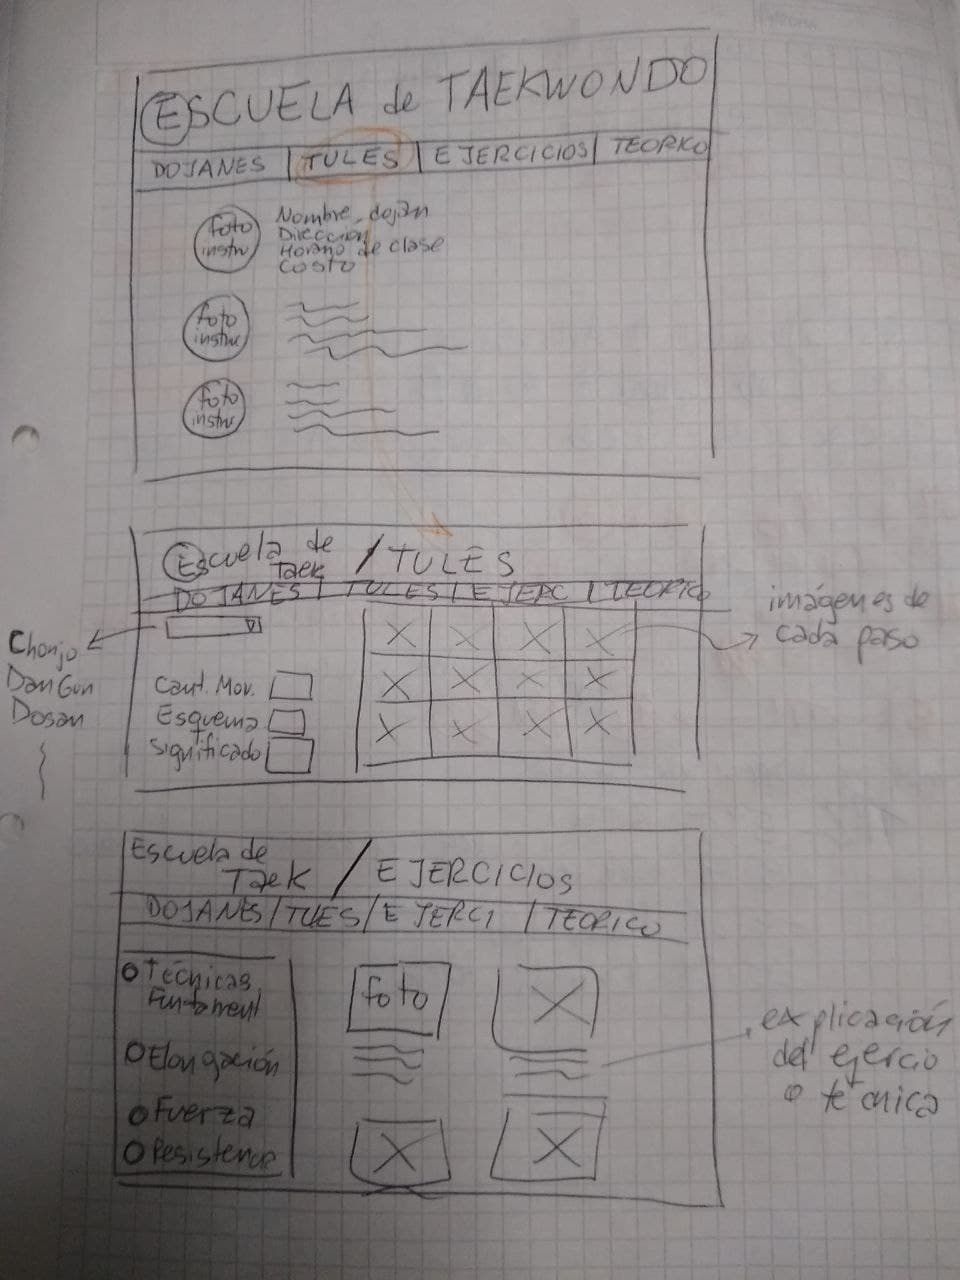 ESCUELA de TAEKWONDO
DOJANES | TULES | EJERCICIOS | TEORICO
foto
instru
Nombre dojan
Dirección
Horario de clase
Costo
foto
instru
foto
instru
Escuela de
Taek / TULES
DOJANES | TULES | EJERC | TEORICO
imágenes de
cada paso
Chonjo
DanGun
Dosan
Cant. Mov.
Esquema
Significado
Escuela de
Taek / EJERCICIOS
DOJANES / TUES / EJERCI / TEORICO
Técnicas
Fundament
Elongación
Fuerza
Resistence
foto
explicación
del ejercio
o técnica